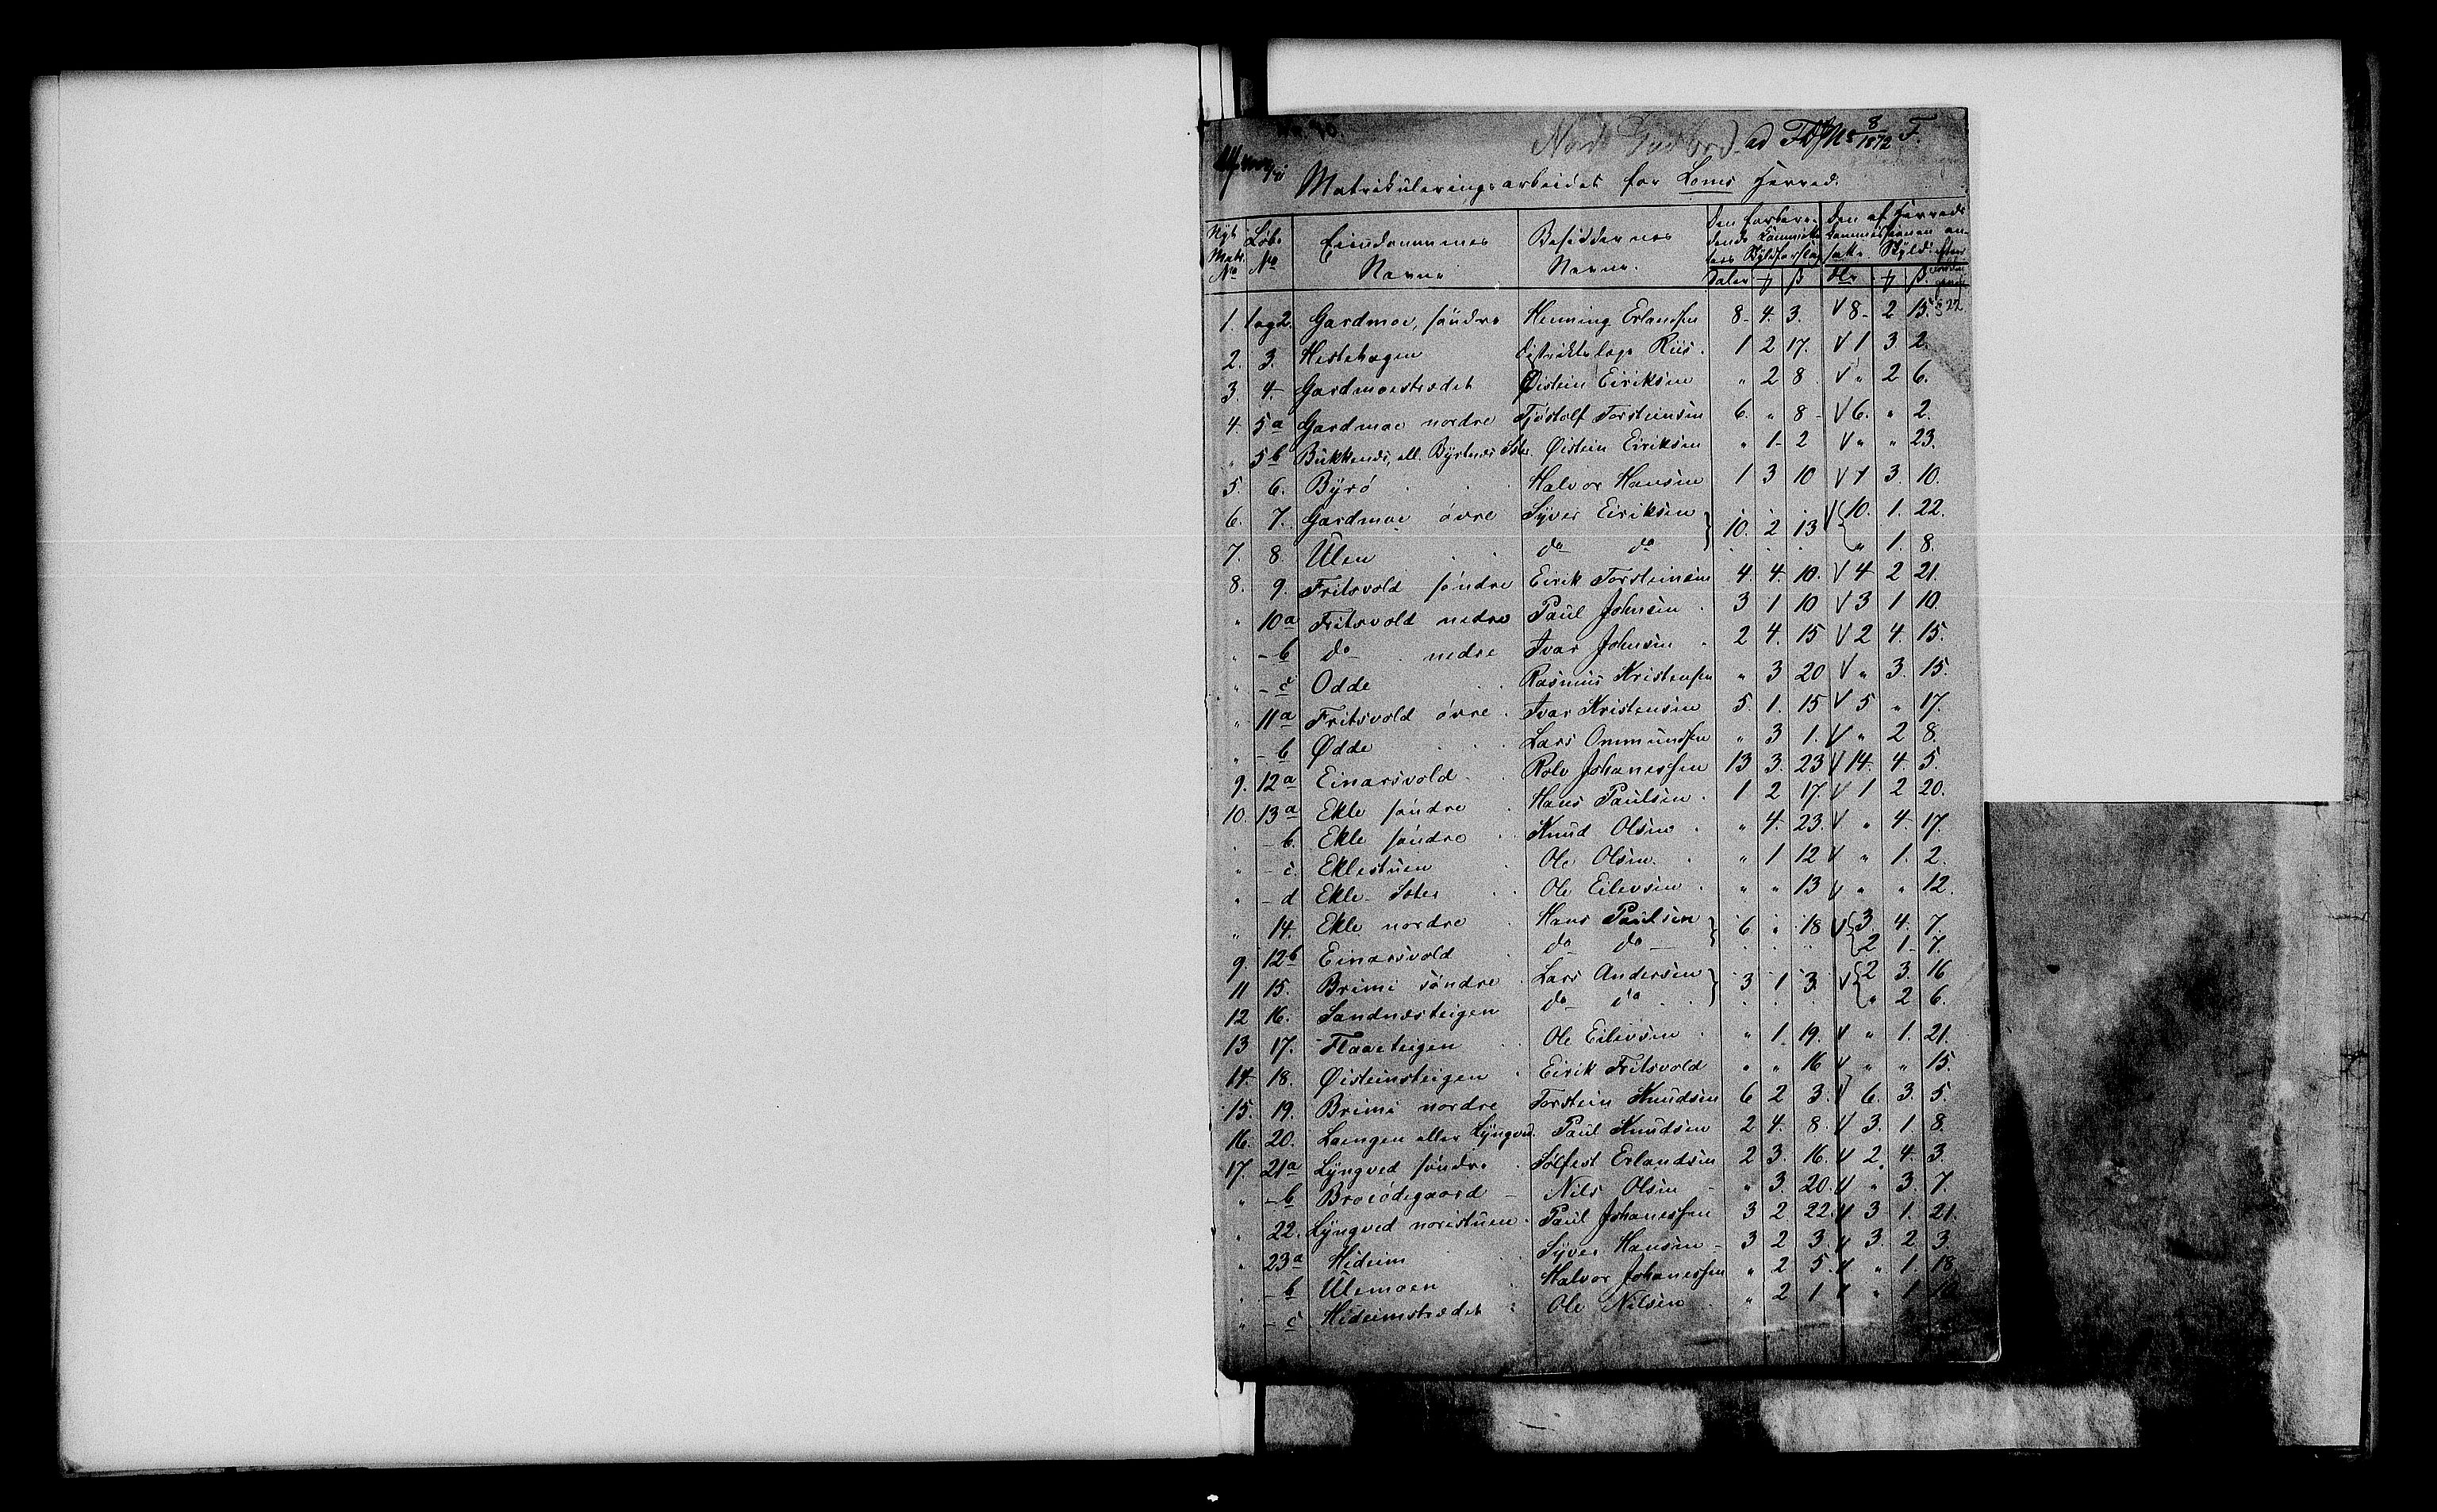 Nord Gudbrd. ad F 8/1872 F.
Matrikuleringsarbeidet for Loms Herred.
Nyt Matr. No | Løbe No | Eiendommenes Navne | Besiddernes Navne. | Den forbere- dende Kommitte- ens Skyldforslag | Den af Herreds kommissionen an- satte Skyld
Daler | ₰ | β | Dlr | ₰ | β.
1. 1 og 2. Gardmoe, søndre Henning Erlandsen 8- 4. 3. V 8- 2 15. § 22
2. 3. Hestehagen Distriktslæge Riis. 1 2 17. V 1 3 2.
3. 4. Gardmoestrædet Øistein Eiriksen " 2 8. V " 2 6.
4. 5a Gardmoe nordre Tjøstolf Torsteinsen 6. " 8- V 6. " 2.
" 5b Bukkenæs, ell. Byrtnæs Øistein Eiriksen " 1- 2 V " " 23.
5. 6. Byrø Halvor Hansen 1 3 10 V 1 3. 10.
6. 7. Gardmoe øvre Syver Eiriksen } 10. 2 13 V { 10. 1. 22.
7. 8. Ulen do do " 1. 8.
8. 9. Fritsvold søndre Eirik Torsteinsen 4. 4. 10. V 4 2 21.
" 10a Fritsvold nedre Paul Johnsen 3 1 10 V 3 1 10.
" - b do nedre Ivar Johnsen 2 4. 15 V 2 4. 15.
" - c Odde Rasmus Kristensen " 3 20 V " 3. 15.
" 11a Fritsvold øvre Ivar Kristensen 5. 1. 15 V 5 " 17.
" - b Ødde Lars Ommundsen " 3 1. V " 2 8.
9. 12a Einarsvold Rolv Johanessen 13 3. 23 V 14. 4. 5.
10. 13a Ekle søndre Hans Paulsen 1 2 17. V 1 2 20.
" - b. Ekle søndre Knud Olsen " 4. 23. V " 4. 17.
" - c. Eklestuen Ole Olsen " 1 12 V " 1. 2.
" - d Ekle Ole Eilevsen " " 13 V " " 12.
" 14. Ekle nordre Hans Paulsen } 6 " 18 V { 3. 4. 7.
9. 12b Einarsvold do do 2 1- 7.
11 15. Brimi søndre Lars Andersen } 3 1 3. V { 2 3. 16
12 16. Sandnæsteigen do do " 2 6.
13 17. Flaaeteigen Ole Eilevsen " 1. 19. V " 1. 21.
14. 18. Øisteinsteigen Eirik Fritsvold " " 16 V " " 15.
15. 19. Brimi nordre Torstein Knudsen 6 2 3. V 6. 3. 5.
16. 20. Laengen eller Lyngved. Paul Knudsen 2 4. 8. V 3. 1 8.
17. 21a Lyngved søndre Sølfest Erlandsen 2 3. 16. V 2. 4. 3.
" - b Broeødegaard Nils Olsen " 3. 20. V " 3. 7.
" 22. Lyngved noristuen Paul Johanessen 3 2 22. V 3 1. 21.
" 23a Hideim Syver Hansen 3 2 3. V 3. 2 3.
" - b Ulemoen Halvor Johanessen " 2 5. V " 1. 18
" - c Hideimstrædet Ole Nilsen " 2 1 V " 1 10